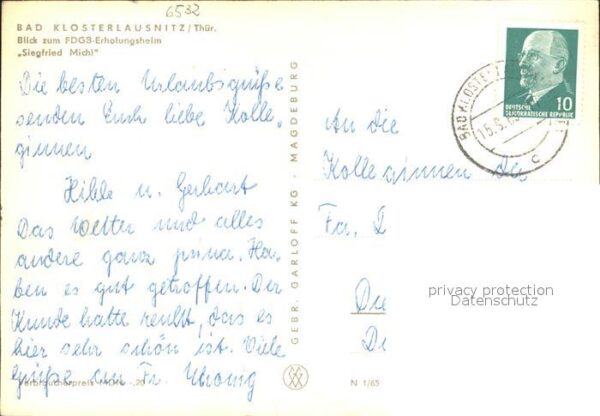 6532
BAD KLOSTERLAUSNITZ/Thür.
Blick zum FDGB-Erholungsheim
„Siegfried Michl"
Die besten Urlaubsgrüße
senden Euch liebe Kolle-
ginnen
Hilde u. Gerhart
Das Wetter und alles
andere ganz prima. Ha-
ben es gut getroffen. Der
Kunde hatte recht, das es
hier sehr schön ist. Viele
Grüße an Fr.
Verbraucherpreis MDN -,20
GEBR. GARLOFF KG · MAGDEBURG
N 1/65
DEUTSCHE
DEMOKRATISCHE REPUBLIK
10
BAD KLOSTERLAUSNITZ
15.9.
c
An die
Kolleginnen der
Fa.
privacy protection
Datenschutz